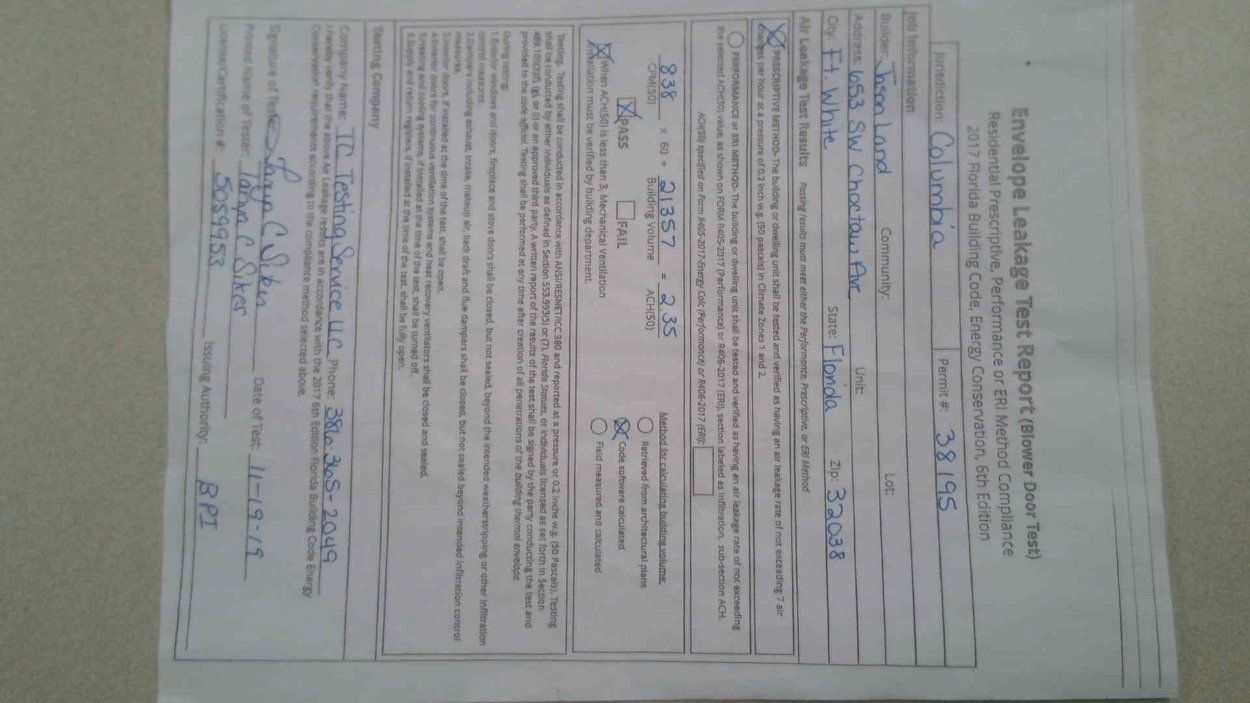 Envelope Leakage Test Report (Blower Door Test)
Residential Prescriptive, Performance or ERI Method Compliance
2017 Florida Building Code, Energy Conservation, 6th Edition
Jurisdiction: Columbia Permit #: 38195
Job Information
Builder: Jason Land Community: Lot:
Address: 653 SW Choctaw Ave Unit:
City: Ft. White State: Florida Zip: 32038
Air Leakage Test Results Passing results must meet either the Performance, Prescriptive, or ERI Method
PRESCRIPTIVE METHOD- The building or dwelling unit shall be tested and verified as having an air leakage rate of not exceeding 7 air
changes per hour at a pressure of 0.2 inch w.g. (50 pascals) in Climate Zones 1 and 2.
PERFORMANCE or ERI METHOD- The building or dwelling unit shall be tested and verified as having an air leakage rate of not exceeding
the selected ACH(50) value, as shown on FORM R405-2017 (Performance) or R406-2017 (ERI), section labeled as infiltration, sub-section ACH.
ACH(50) specified on Form R405-2017-Energy Calc (Performance) or R406-2017 (ERI):
838 x 60 ÷ 21357 = 2.35
CFM(50) Building Volume ACH(50)
PASS FAIL
When ACH(50) is less than 3, Mechanical Ventilation
installation must be verified by building department.
Method for calculating building volume:
Retrieved from architectural plans
Code software calculated
Field measured and calculated
Testing. Testing shall be conducted in accordance with ANSI/RESNET/ICC 380 and reported at a pressure or 0.2 inche w.g. (50 Pascals). Testing
shall be conducted by either individuals as defined in Section 553.993(5) or (7), Florida Statues, or individuals licensed as set forth in Section
489.105(3)(f), (g), or (i) or an approved third party. A written report of the results of the test shall be signed by the party conducting the test and
provided to the code official. Testing shall be performed at any time after creation of all penetrations of the building thermal envelope.
During testing:
1.Exterior windows and doors, fireplace and stove doors shall be closed, but not sealed, beyond the intended weatherstripping or other infiltration
control measures.
2.Dampers including exhaust, intake, makeup air, back draft and flue dampers shall be closed, but not sealed beyond intended infiltration control
measures.
3.Interior doors, if installed at the time of the test, shall be open.
4.Exterior doors for continuous ventilation systems and heat recovery ventilators shall be closed and sealed.
5.Heating and cooling systems, if installed at the time of the test, shall be turned off.
6.Supply and return registers, if installed at the time of the test, shall be fully open.
Testing Company
Company Name: TC Testing Service LLC Phone: 386.365-2049
I hereby verify that the above Air Leakage results are in accordance with the 2017 6th Edition Florida Building Code Energy
Conservation requirements according to the compliance method selected above.
Signature of Tester:
Printed Name of Tester: C Sikes Date of Test: 11-19-19
License/Certification #: 5059953 Issuing Authority: BPI